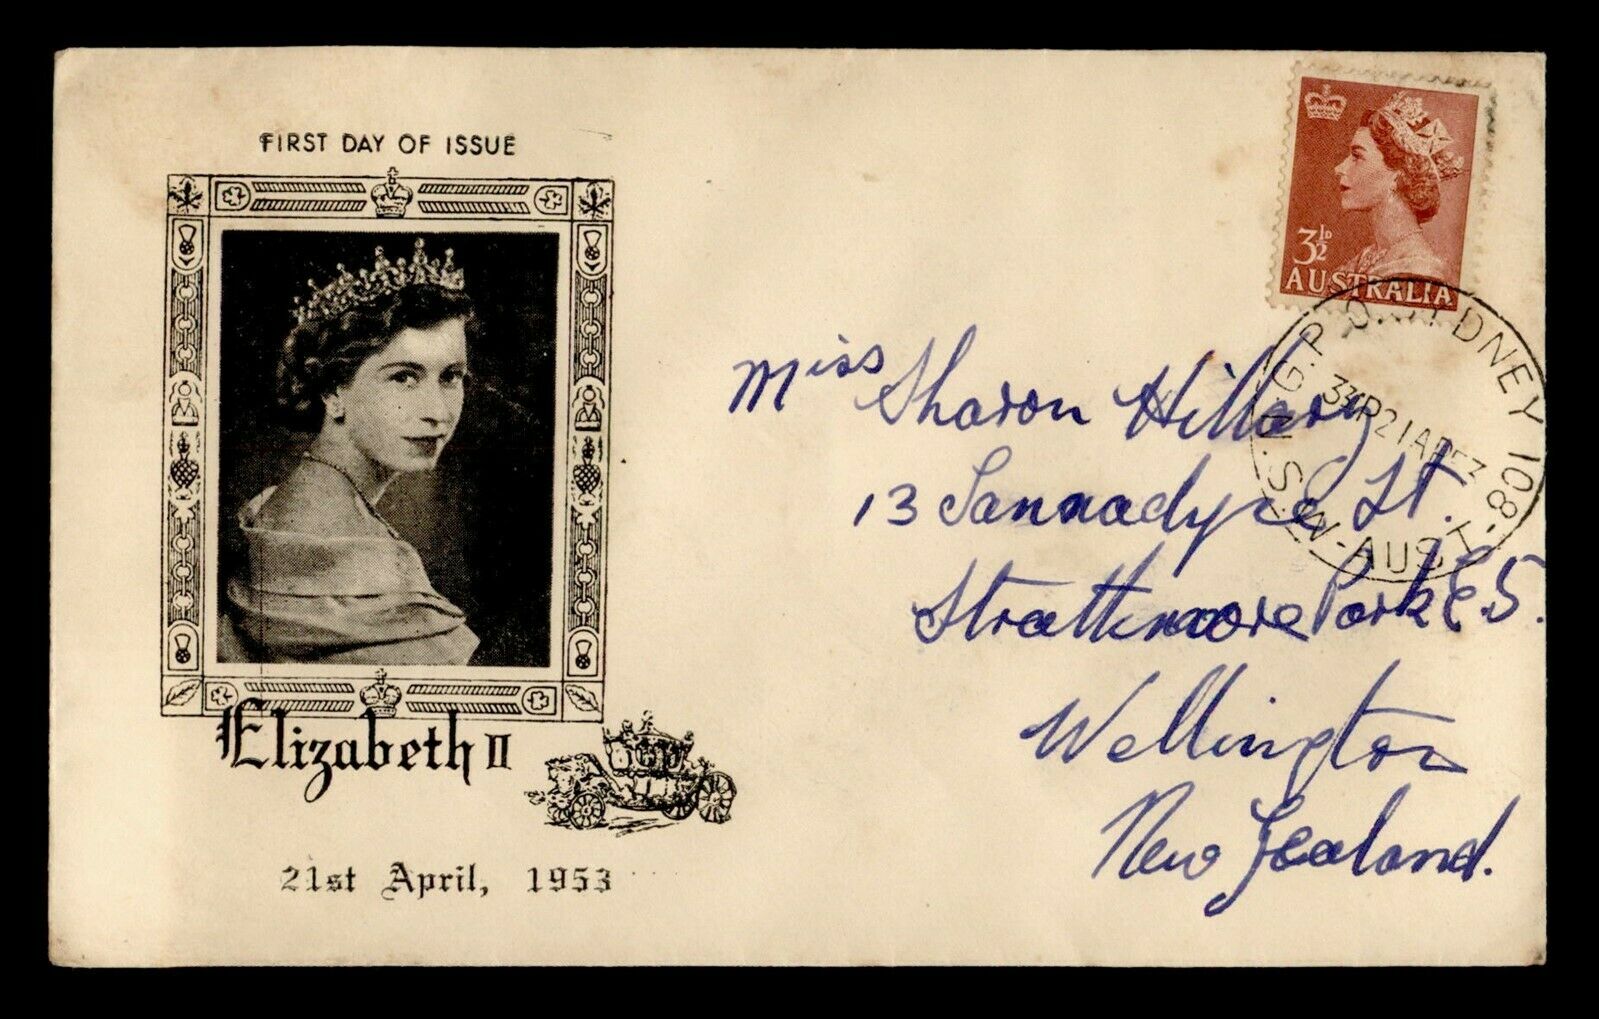 FIRST DAY OF ISSUE
Elizabeth II
21st April, 1953
3½D
AUSTRALIA
G.P.O. SYDNEY 108
21 AP 53
N.S.W-AUST
Miss Sharon Hillary
13 Sannadyce St.
Strathmore Park E 5.
Wellington
New Zealand.